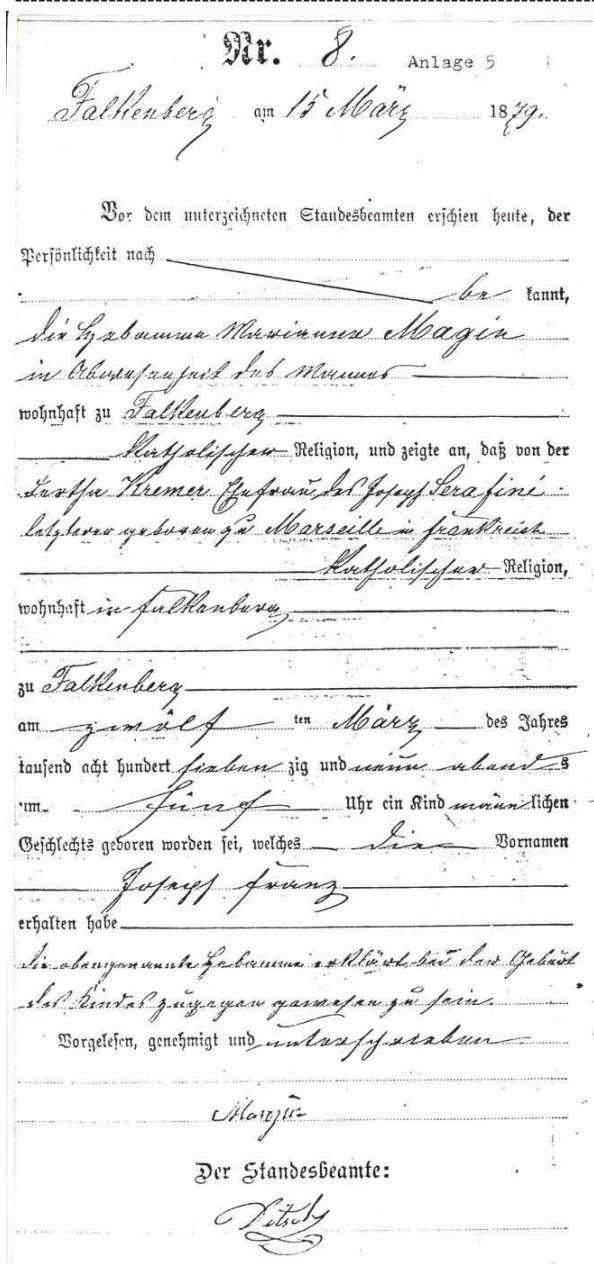 Nr. 8. Anlage 5
Falkenberg am 15 März 1879.
Vor dem unterzeichneten Standesbeamten erschien heute, der
Persönlichkeit nach
be kannt,
die Hebamme Marianne Magin
in Abwesenheit des Mannes
wohnhaft zu Falkenberg
Katholischer Religion, und zeigte an, daß von der
Kremer Ehefrau des Joseph Serafiné
letzterer geboren zu Marseille in Frankreich
Katholischer Religion,
wohnhaft in Falkenberg
zu Falkenberg
am zwölf ten März des Jahres
tausend acht hundert sieben zig und neun abends
um fünf Uhr ein Kind männ lichen
Geschlechts geboren worden sei, welches die Vornamen
Joseph Franz
erhalten habe
die obengenannte Hebamme erklärt bei der Geburt
des Kindes zugegen gewesen zu sein.
Vorgelesen, genehmigt und unterschrieben
Der Standesbeamte: